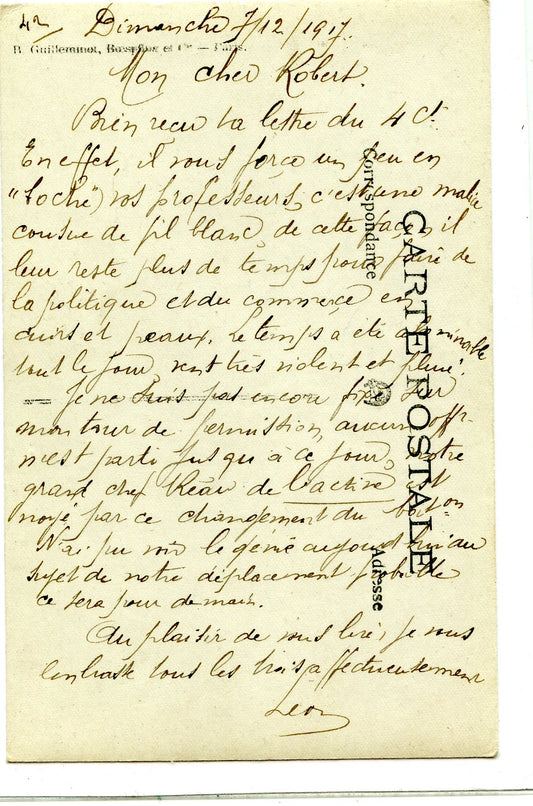 42 Dimanche 7/12/1917.
B. Guilleminot, Bœspflug et Cie — Paris.
Mon cher Robert.
Bien reçu ta lettre du 4 ct.
En effet, il vous force un peu en
"boche") vos professeurs, c'est une malice
cousue de fil blanc, de cette façon il
leur reste plus de temps pour faire de
la politique et du commerce en
cuirs et peaux. Le temps a été abominable
tout le jour, vent très violent et pluie.
Je ne suis pas encore fixé sur
mon tour de permission, aucun offr
n'est parti jusqu'à ce jour, notre
grand chef de l'active est
noyé par ce changement du bat on
N'ai pu voir le génie aujourd'hui au
sujet de notre déplacement probable
ce sera pour demain.
Au plaisir de vous lire, je vous
embrasse tous les trois affectueusement
Léon
CARTE POSTALE
Correspondance
Adresse